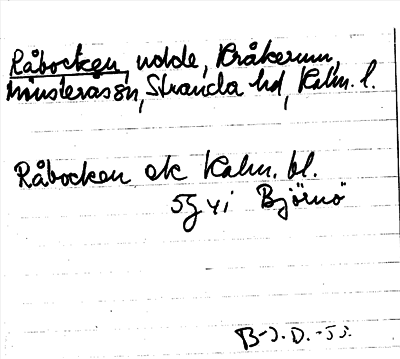 Råbocken, udde, Kråkerum,
Mönsterås sn, Stranda hd, Kalm. l.
Råbocken ek Kalm. bl.
5g vi Björnö
B-J. D. -55.